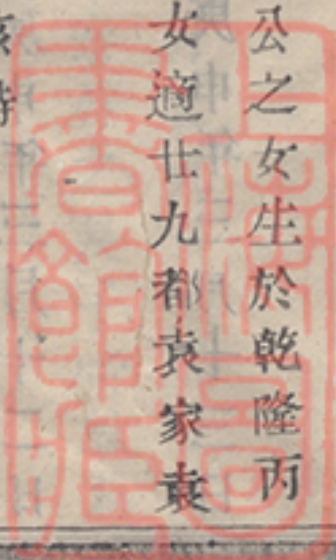 公之女生於乾隆丙
女適廿九都袁家袁